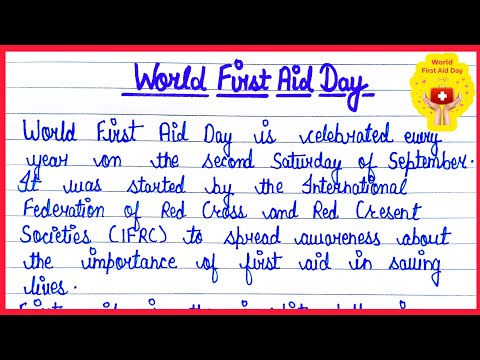 World First Aid Day
World
First Aid Day
World First Aid Day is celebrated every
year on the second Saturday of September.
It was started by the International
Federation of Red Cross and Red Cresent
Societies (IFRC) to spread awareness about
the importance of first aid in saving
lives.